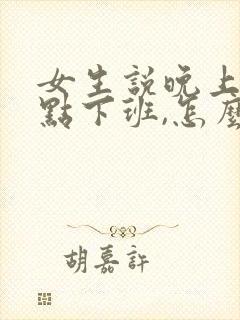 女生説晚上
點下班,怎麼
胡嘉許